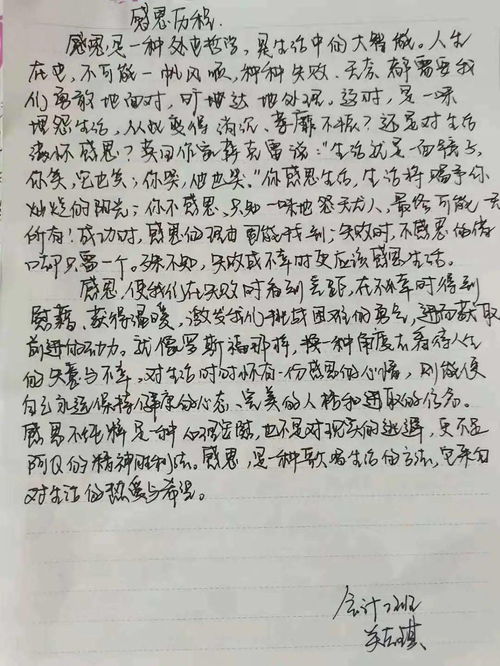 感恩历程
感恩,是一种处世哲学,是生活中的大智慧。人生
在世,不可能一帆风顺,种种失败、无奈都需要我
们勇敢地面对,旷达地处理。这时,是一味
埋怨生活,从此变得消沉、萎靡不振?还是对生活
满怀感恩?英国作家萨克雷说:"生活就是一面镜子,
你笑,它也笑;你哭,他也哭。"你感恩生活,生活将赐予你
灿烂的阳光;你不感恩,只知一味地怨天尤人,最终可能一无
所有!成功时,感恩的理由固能找到;失败时,不感恩的借
口却只需一个。殊不知,失败或不幸时更应该感恩生活。
感恩,使我们在失败时看到差距,在不幸时得到
慰藉、获得温暖,激发我们挑战困难的勇气,进而获取
前进的动力。就像罗斯福那样,换一种角度去看待人生
的失意与不幸,对生活时时怀有一份感恩的心情,则能使
自己永远保持健康的心态、完美的人格和进取的信念。
感恩不纯粹是一种心理安慰,也不是对现实的逃避,更不是
阿Q的精神胜利法。感恩,是一种歌唱生活的方法,它来自
对生活的热爱与希望。
会计班